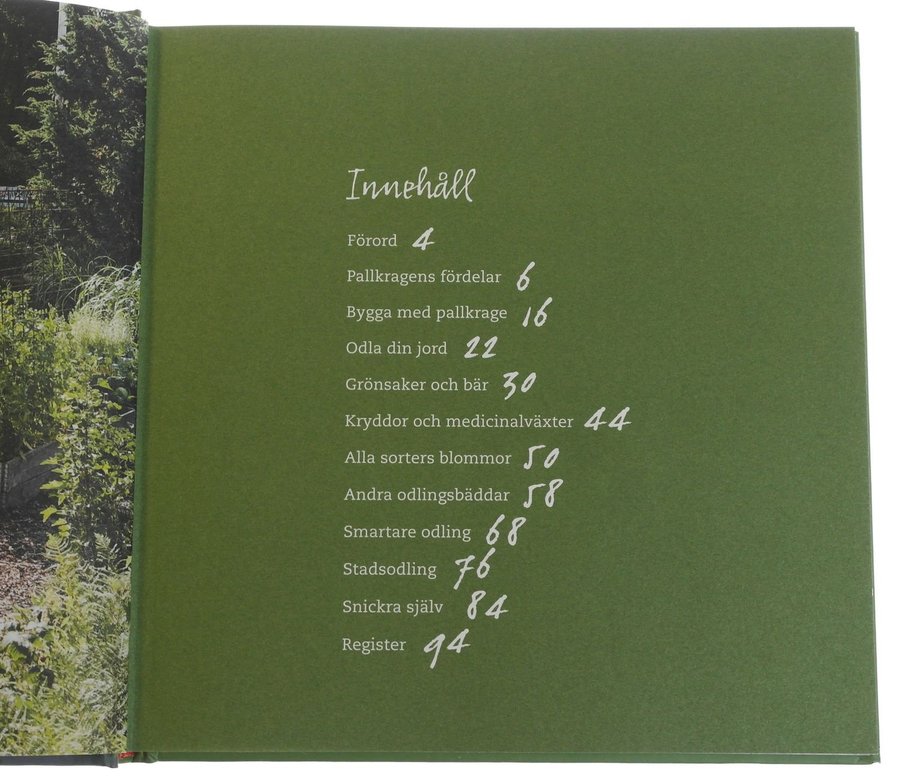 Innehåll
Förord 4
Pallkragens fördelar 6
Bygga med pallkrage 16
Odla din jord 22
Grönsaker och bär 30
Kryddor och medicinalväxter 44
Alla sorters blommor 50
Andra odlingsbäddar 58
Smartare odling 68
Stadsodling 76
Snickra själv 84
Register 94